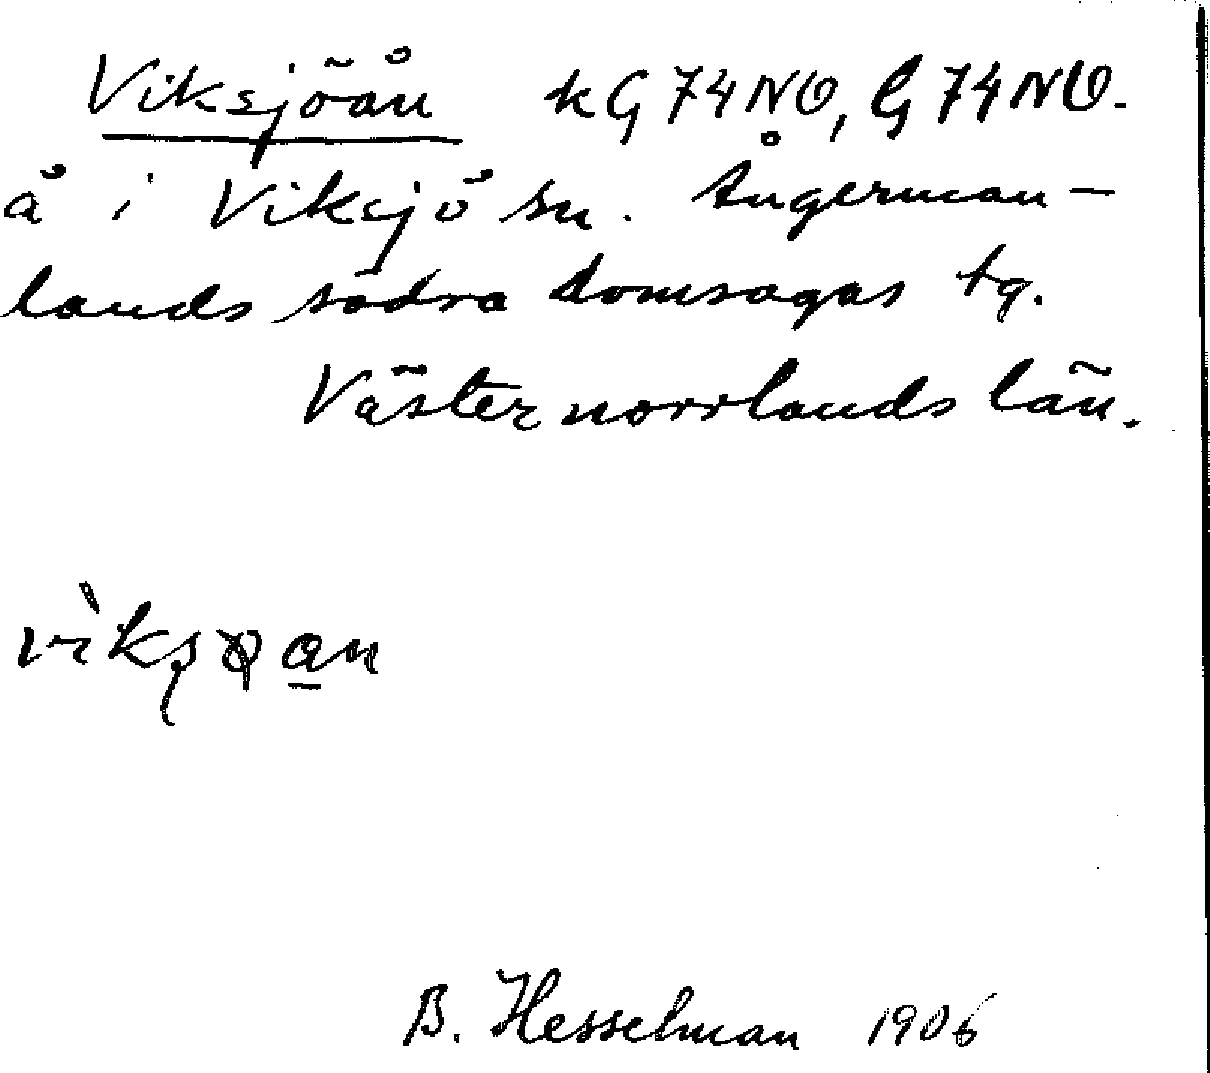 Viksjöån kG74NO, G74NO.
å i Viksjö sn. Ångerman-
lands södra domsagas tg.
Västernorrlands län.
B. Hesselman 1906